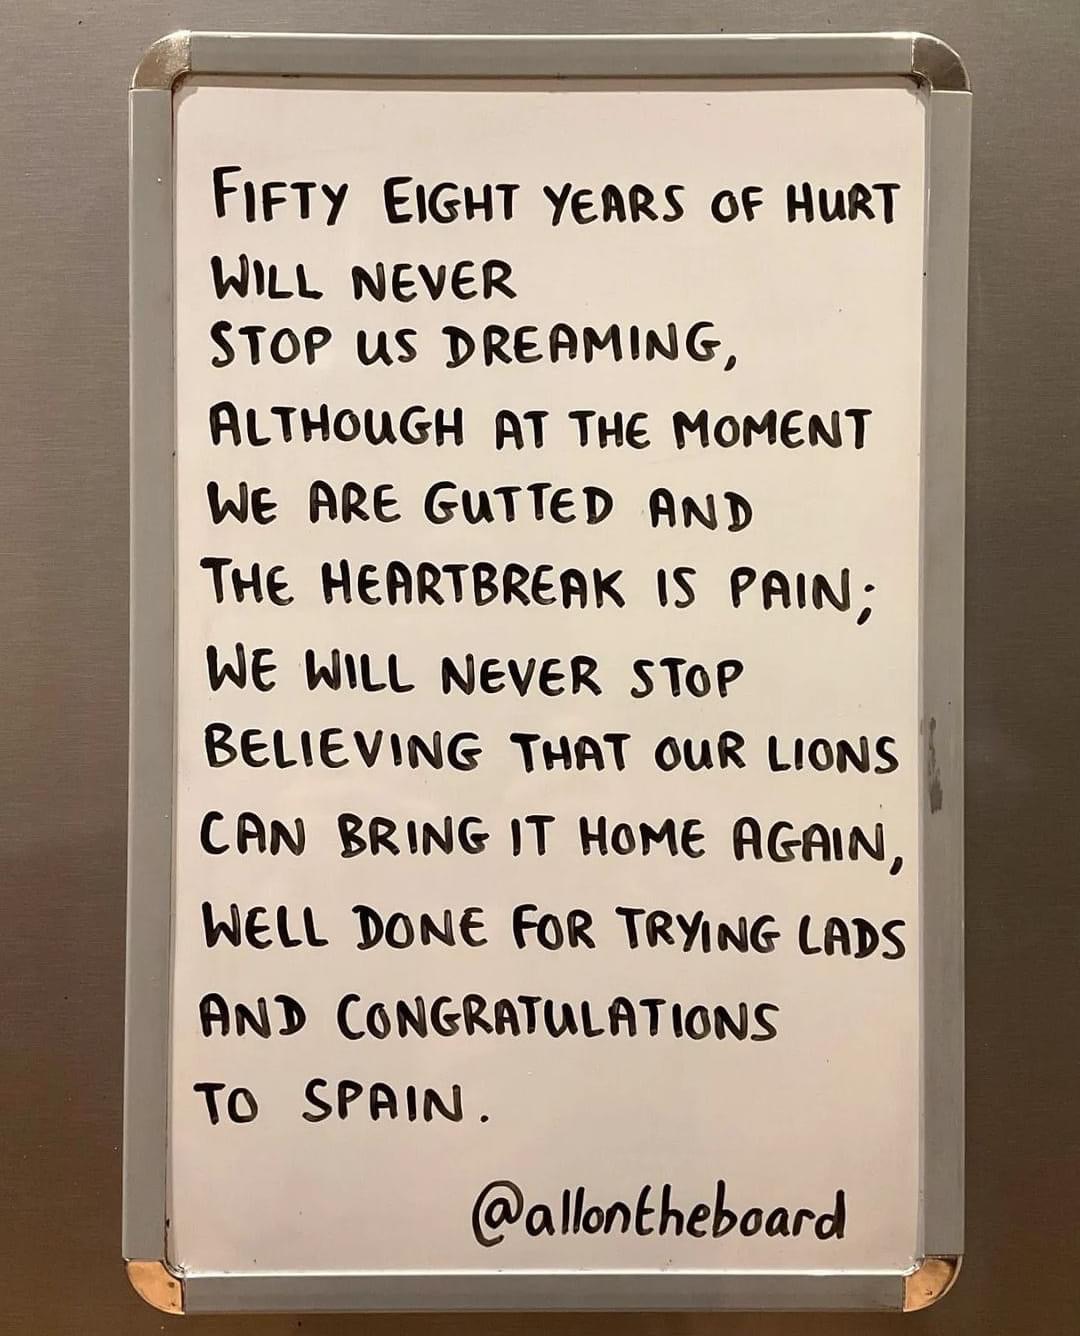 FIFTY EIGHT YEARS OF HURT
WILL NEVER
STOP US DREAMING,
ALTHOUGH AT THE MOMENT
WE ARE GUTTED AND
THE HEARTBREAK IS PAIN;
WE WILL NEVER STOP
BELIEVING THAT OUR LIONS
CAN BRING IT HOME AGAIN,
WELL DONE FOR TRYING LADS
AND CONGRATULATIONS
TO SPAIN.
@allontheboard